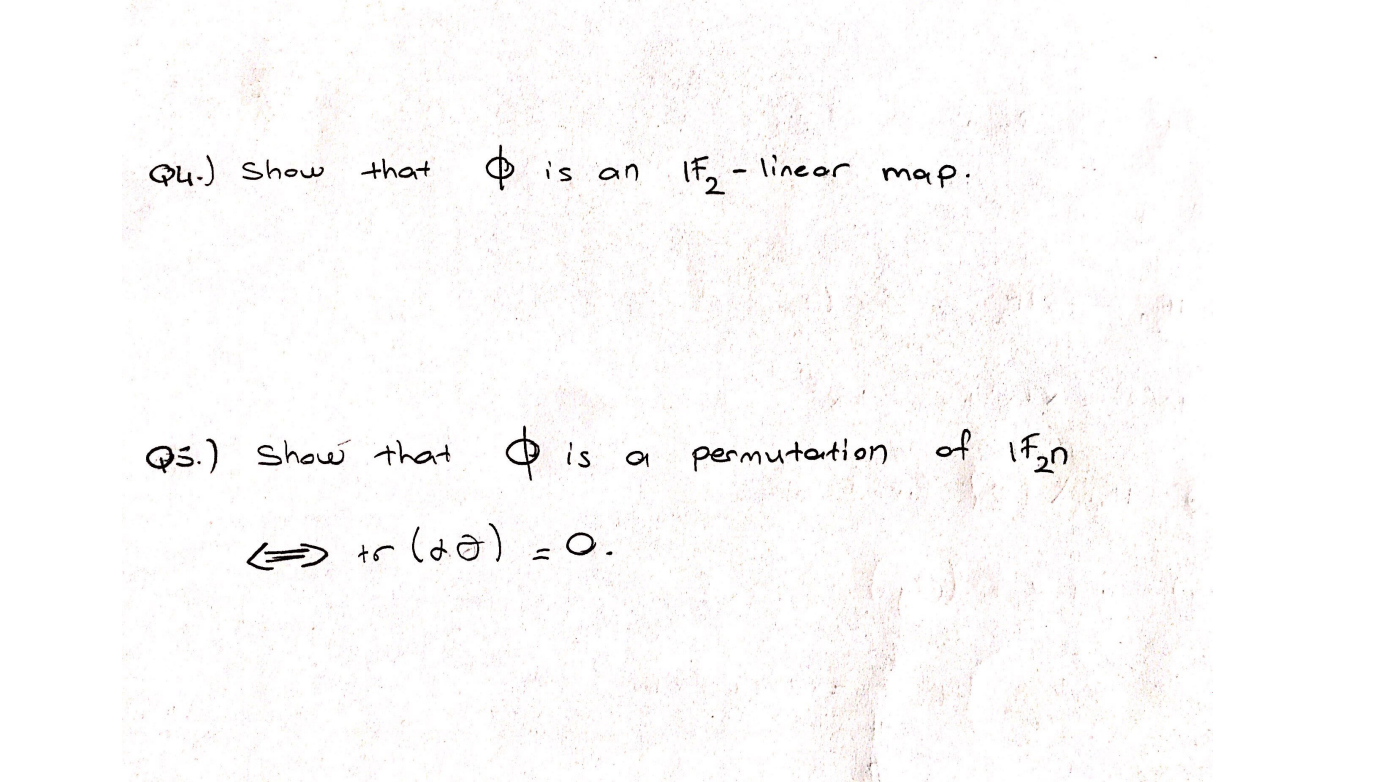 Q4.) Show that ϕ is an 𝔽₂ - linear map.
Q5.) Show that ϕ is a permutation of 𝔽₂n
⟺ tr (αθ) = 0.